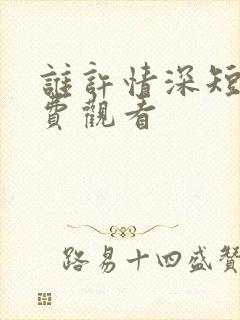 誰許情深短
費觀看
路易十四盛贊